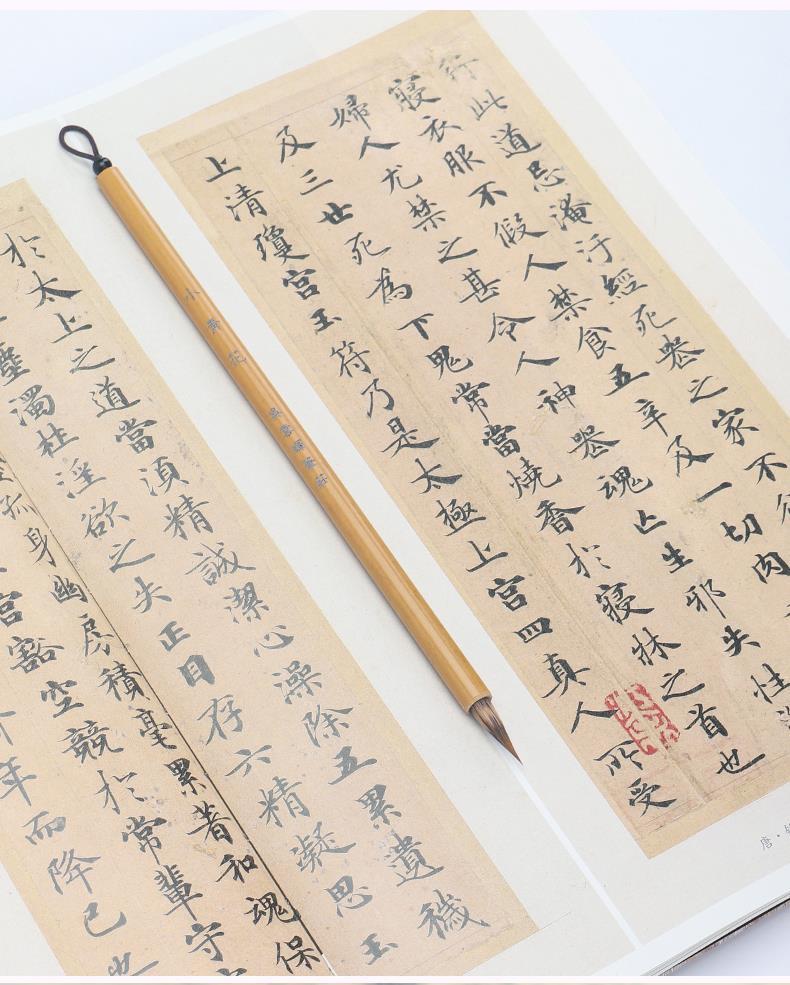 行此道忌淹汙經死喪之家不
寢衣服不假人禁食五辛及一切肉
婦人尤禁之甚令人神喪魂亡生邪失性
及三世死為下鬼常當燒香於寢牀之首也
上清瓊宮玉符乃是太極上宮四真人所受
唐·
於太上之道當須精誠潔心澡除五累遺穢
塵濁杜淫欲之失正目存六精凝思玉
孤身幽房積毫累著和魂保
宮豁空競於常輩守
年而降已也